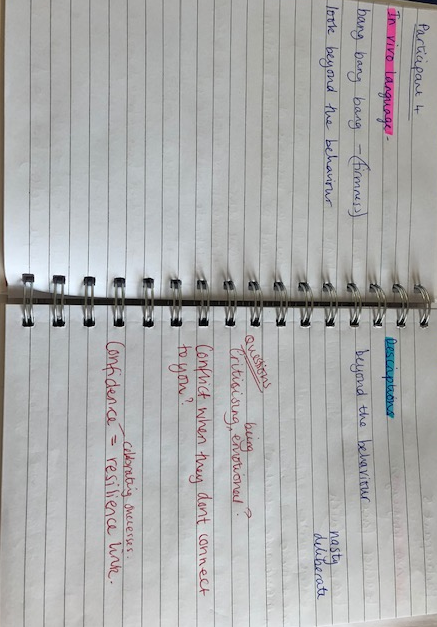 Participant 4
In vivo language -
bang bang bang - (firmness)
look beyond the behaviour
Descriptions
beyond the behaviour
nasty
deliberate
Questions
being
Criticising, emotional?
Conflict when they dont connect
to you?
celebrating successes.
Confidence = resilience link.